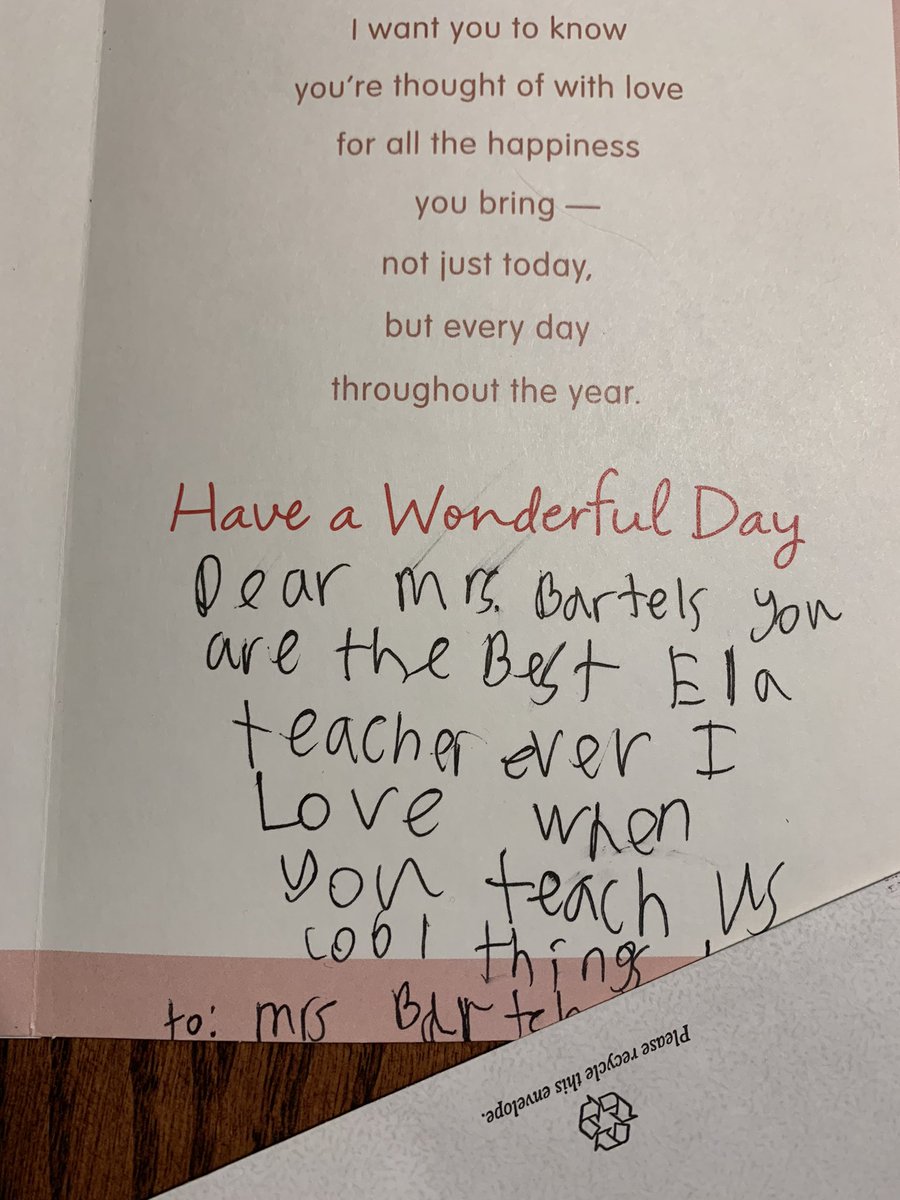 I want you to know
you're thought of with love
for all the happiness
you bring —
not just today,
but every day
throughout the year.
Have a Wonderful Day
Dear mrs. Bartels you
are the Best Ela
teacher ever I
Love when
you teach us
cool things
to: mrs
Please recycle this envelope.